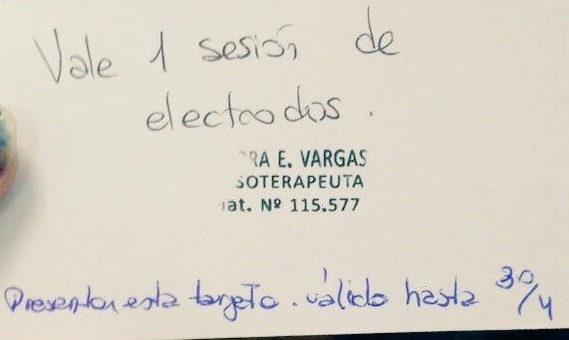 Vale 1 sesión de
electrodos.
RA E. VARGAS
SOTERAPEUTA
at. Nº 115.577
Presentar esta targeta. válido hasta 30/4